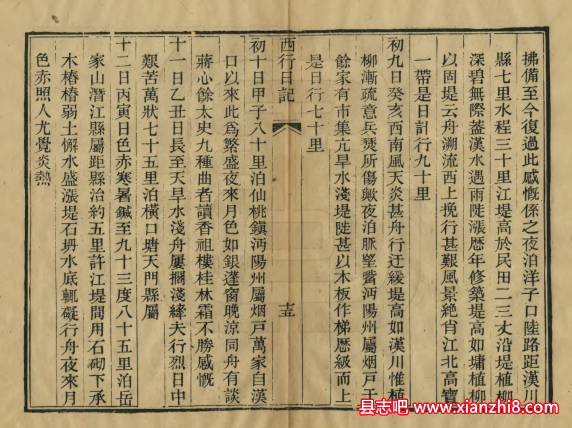 拂備至今復過此感慨係之夜泊洋子口陸路距漢川
縣七里水程三十里江堤高於民田二三丈沿堤植柳
深碧無際蓋漢水遇雨陡漲歷年修築堤高如墉植柳
以固堤云舟溯流西上挽行甚艱風景絕肖江北高寶
一帶是日計行九十里
初九日癸亥西南風天炎甚舟行迂緩堤高如漢川惟植
柳漸疏意兵燹所傷敝夜泊脈墅嘴沔陽州屬烟戸千
餘家有市集亢旱水淺堤陡甚以木板作梯歷級而上
是日行七十里
西行日記
十五
初十日甲子八十里泊仙桃鎮沔陽州屬烟戸萬家自漢
口以來此爲繁盛夜來月色如銀蓬窗晚涼同舟有談
蔣心餘太史九種曲者讀香祖樓桂林霜不勝感慨
十一日乙丑日長至天旱水淺舟屢擱淺縴夫行烈日中
艱苦萬狀七十五里泊橫口塘天門縣屬
十二日丙寅日色赤寒暑鍼至九十三度八十五里泊岳
家山潛江縣屬距縣治約五里許江堤間用石砌下承
木樁樁弱土懈水盛漲堤石坍水底輒礙行舟夜來月
色赤照人尤覺炎熱
县志吧
www.xianzhi8.com